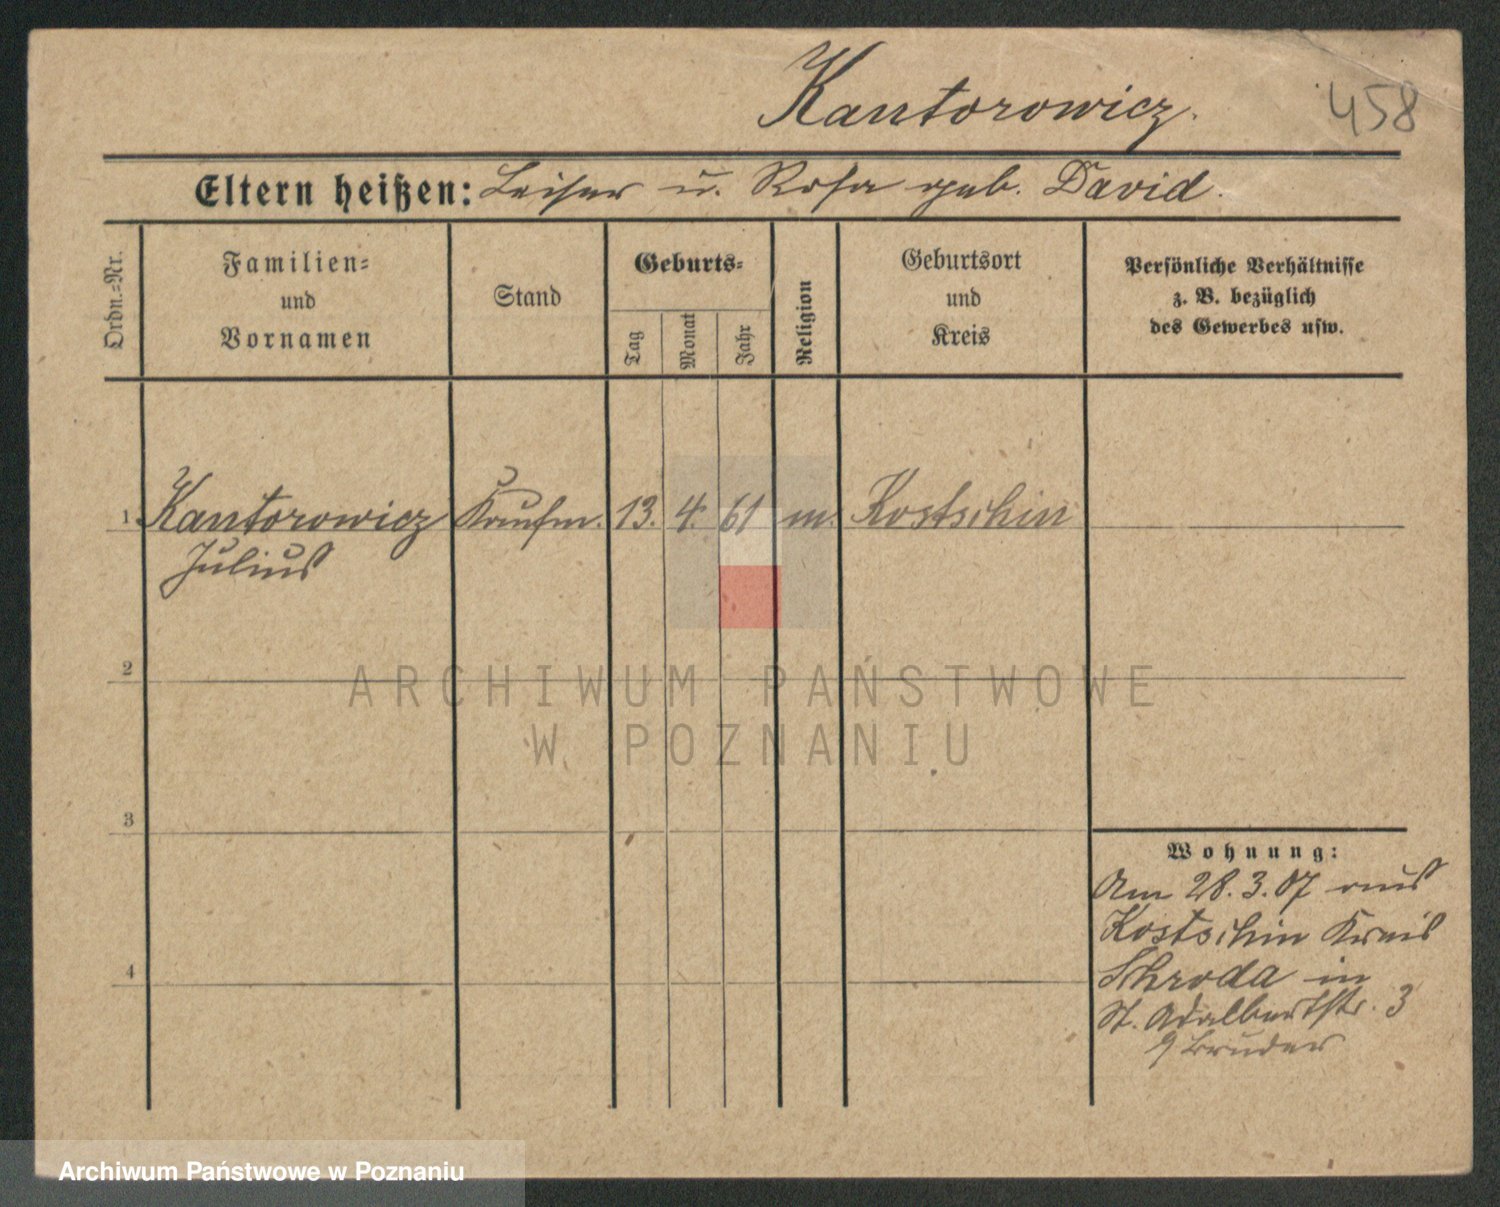 Kantorowicz.
458
Eltern heißen: Leiser u. Rosa geb. David.
Ordn.-Nr.
Familien-
und
Vornamen
Stand
Geburts-
Tag
Monat
Jahr
Religion
Geburtsort
und
Kreis
Persönliche Verhältnisse
z. B. bezüglich
des Gewerbes usw.
1 Kantorowicz Kaufm. 13. 4. 61 m. Kostschin
Julius
2
3
4
Wohnung:
Am 28.3.07 aus
Kostschin Kreis
Schroda in
St. Adalbertstr. 3
Bruder
ARCHIWUM PAŃSTWOWE
W POZNANIU
Archiwum Państwowe w Poznaniu